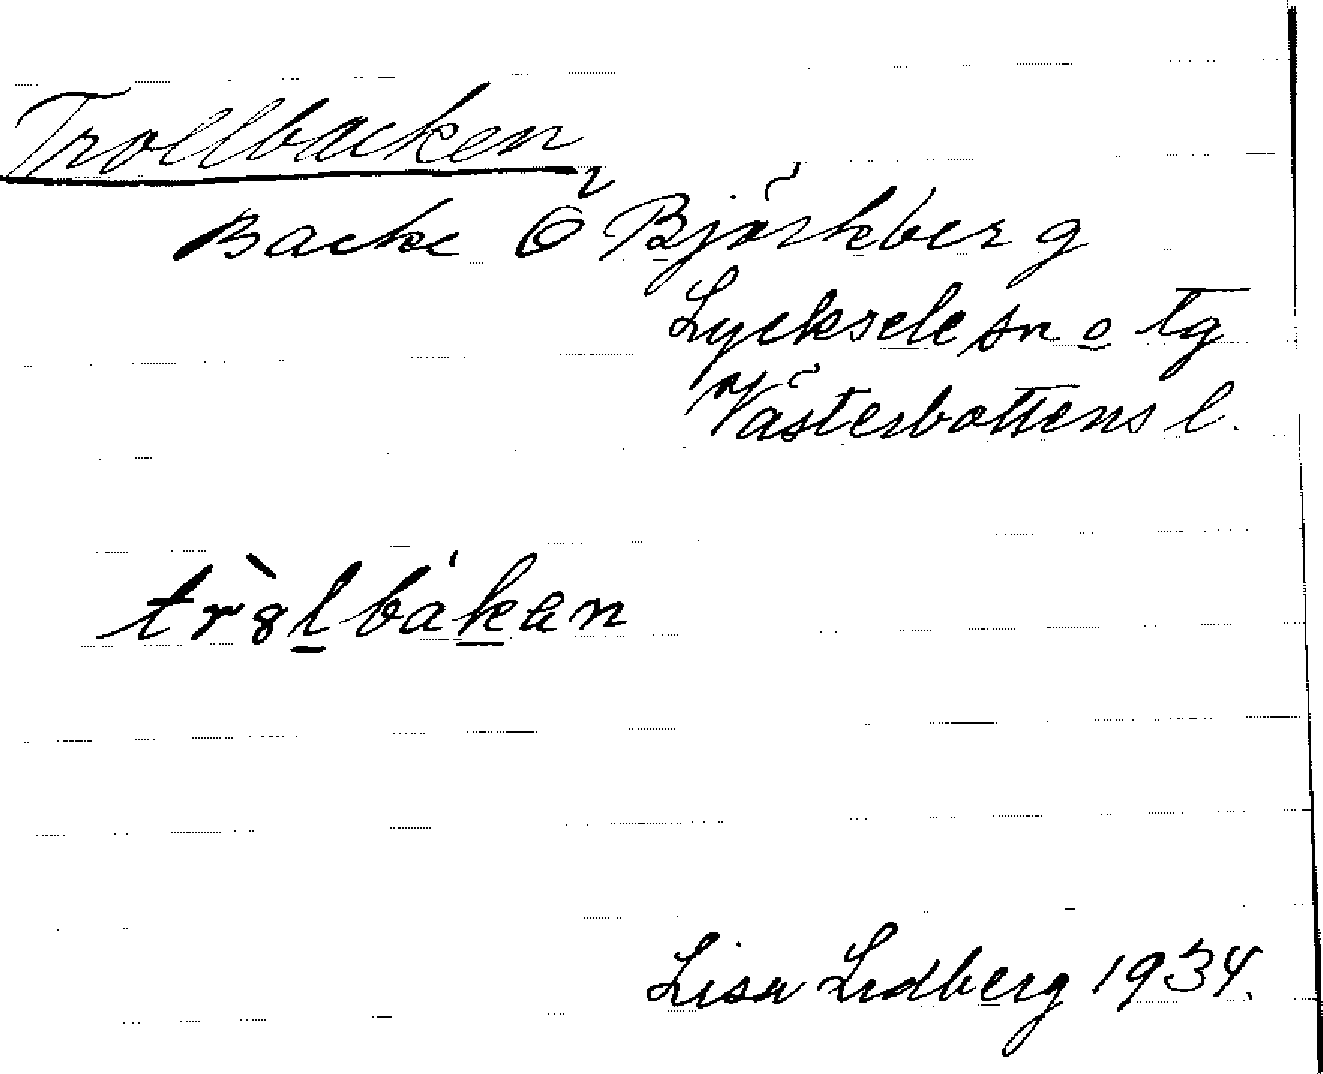 Trollbacken
Backe Ö Björkberg
Lycksele sn o tg
Västerbottens l.
tròlbákan
Lisa Lidberg 1934.